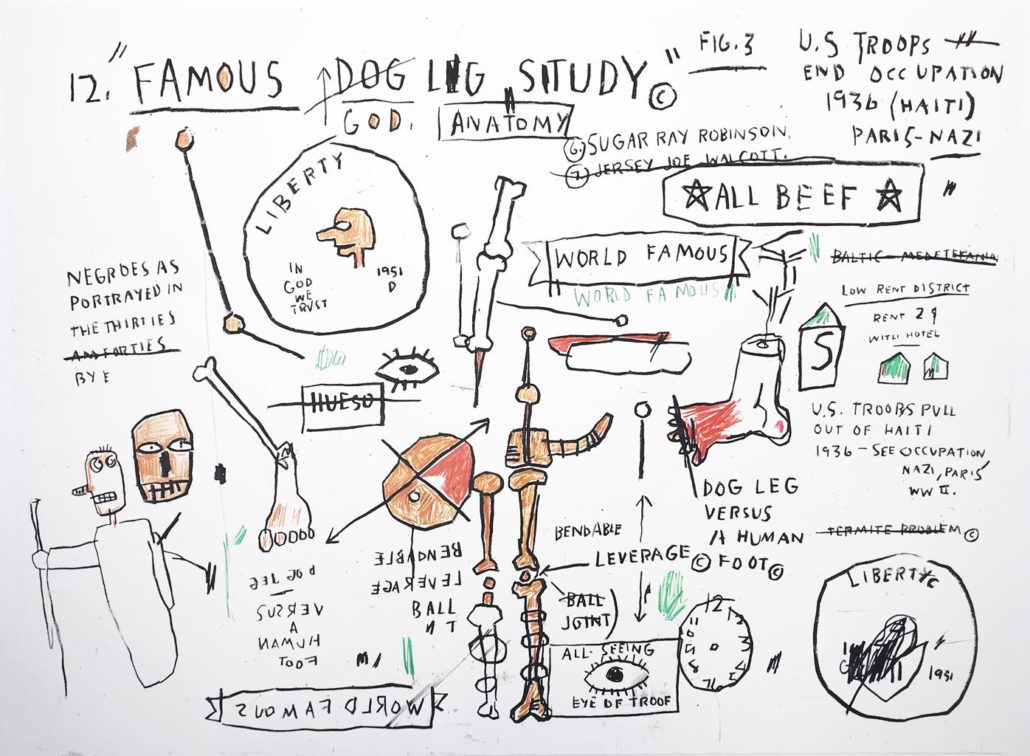 12. "FAMOUS DOG LEG STUDY" ©
GOD.
ANATOMY
FIG. 3
U.S TROOPS
END OCCUPATION
1936 (HAITI)
PARIS-NAZI
6. SUGAR RAY ROBINSON.
7. JERSEY JOE WALCOTT.
ALL BEEF
"
LIBERTY
IN
GOD
WE
TRUST
1951
D
WORLD FAMOUS
WORLD FAMOUS
LOW RENT DISTRICT
RENT 2
WITH HOTEL
S
NEGROES AS
PORTRAYED IN
THE THIRTIES
BYE
HUESO
U.S. TROOPS PULL
OUT OF HAITI
1936 – SEE OCCUPATION
NAZI, PARIS
WW II.
DOG LEG
VERSUS
A HUMAN
FOOT ©
TERMITE PROBLEM ©
BENDABLE
LEVERAGE ©
BALL
JOINT)
BENDABLE
LEVERAGE
BALL
NT
DOG LEG
VERSUS
A
HUMAN
FOOT
ALL-SEEING
EYE OF TROOF
12
LIBERTY
1951
WORLD FAMOUS